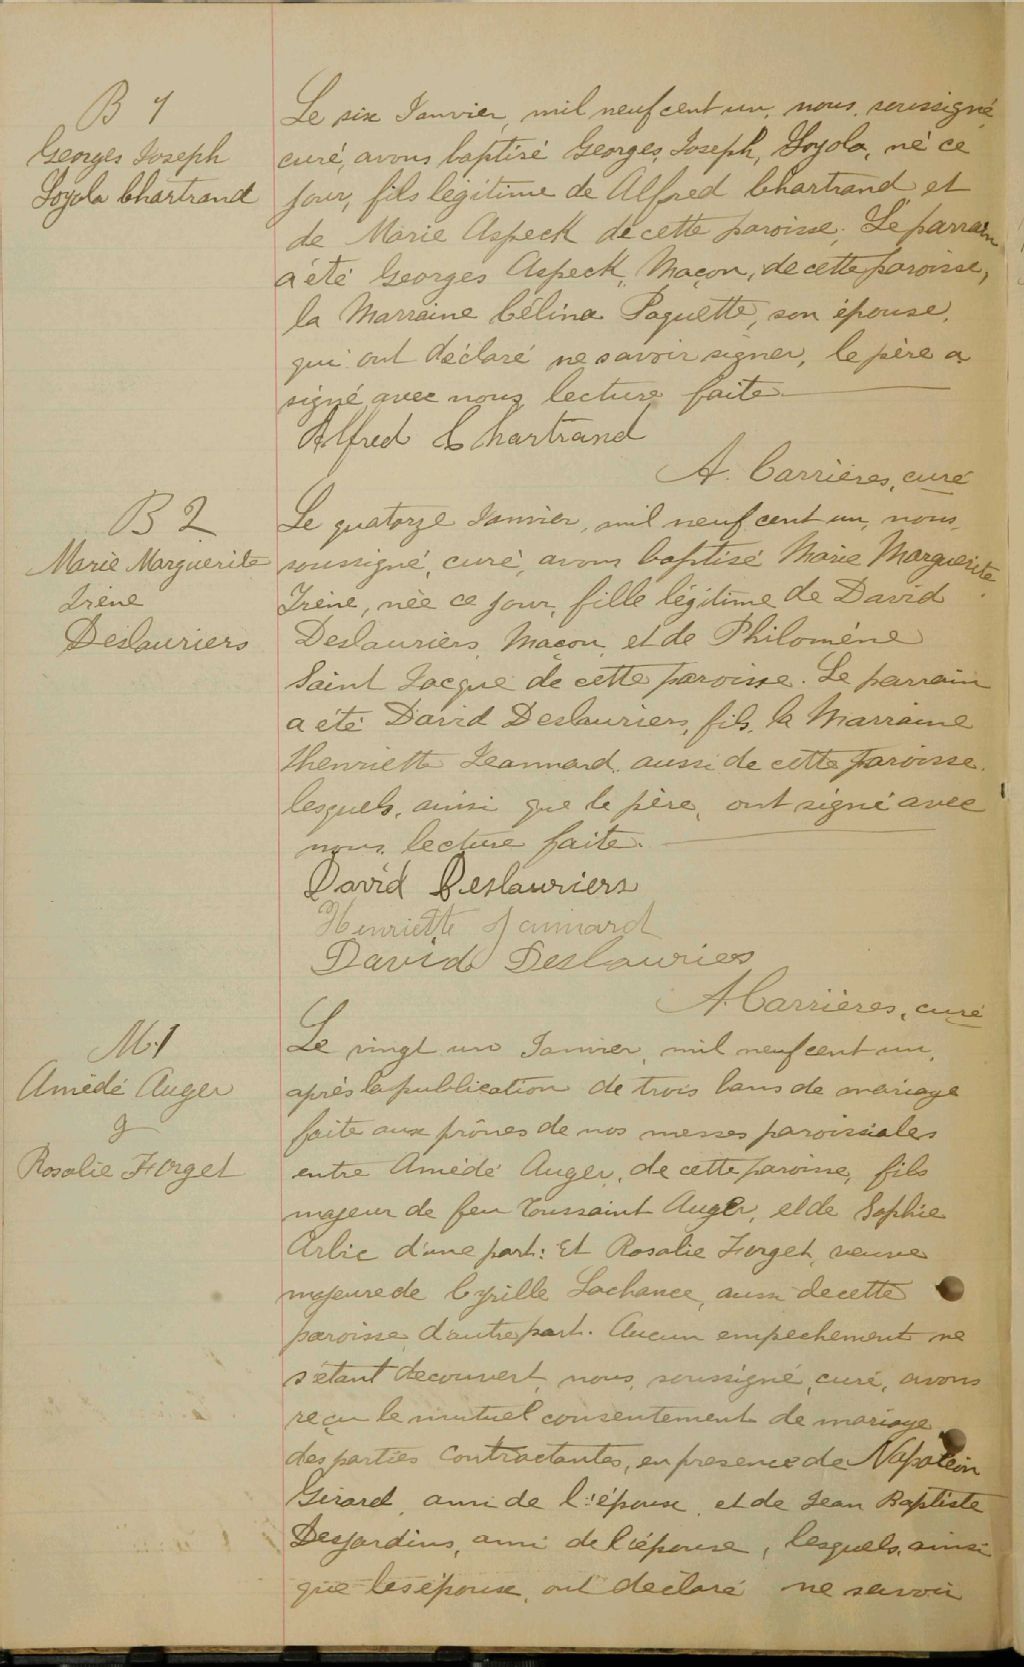 B 1
Georges Joseph
Loyola Chartrand
Le six Janvier, mil neuf cent un, nous, soussigné,
curé, avons baptisé Georges, Joseph, Loyola, né ce
jour, fils légitime de Alfred Chartrand et
de Marie Aspeck de cette paroisse. Le parrain
a été Georges Aspeck, Maçon, de cette paroisse,
la Marraine Célina Paquette, son épouse,
qui ont déclaré ne savoir signer, le père a
signé avec nous lecture faite.
Alfred Chartrand
A. Carrières, curé
B 2
Marie Marguerite
Irène
Deslauriers
Le quatorze Janvier, mil neuf cent un, nous,
soussigné, curé, avons baptisé Marie Marguerite
Irène, née ce jour, fille légitime de David
Deslauriers, Maçon, et de Philomène
Saint Jacque de cette paroisse. Le parrain
a été David Deslauriers, fils, la Marraine
Henriette Jeannard, aussi de cette paroisse.
lesquels, ainsi que le père, ont signé avec
nous, lecture faite.
David Deslauriers
Henriette Jannard
David Deslauries
A. Carrières, curé
M. 1
Amédé Auger
&
Rosalie Forget
Le vingt un Janvier, mil neuf cent un,
après la publication de trois bans de mariage
faite aux prônes de nos messes paroissiales
entre Amédé Auger, de cette paroisse, fils
majeur de feu Toussaint Auger, et de Sophie
Arbic d'une part: Et Rosalie Forget, veuve
majeure de Cyrille Lachance, aussi de cette
paroisse d'autre part. Aucun empechement ne
s'étant decouvert, nous, soussigné, curé, avons
reçu le mutuel consentement de mariage
des parties contractantes, en presence de Napoléon
Girard, ami de l'époux, et de Jean Baptiste
Desjardins, ami de l'épouse, lesquels, ainsi
que les époux, ont déclaré ne savoir